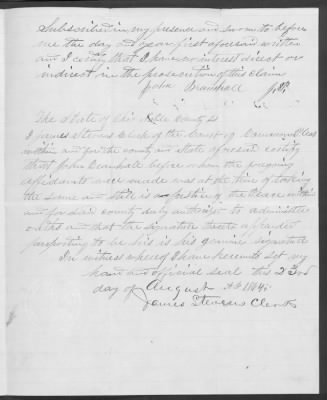 Subscribed in my presence and sworn to before
me the day and year first aforesaid written
and I certify that I have no interest direct or
indirect in the prosecution of this Claim
John Cramhall J.P.
The State of Ohio County ss
I James Stevens Clerk of the Court of Common Pleas
within and for the county and State aforesaid certify
that John Cramhall before whom the foregoing
affidavits were made was at the time of taking
the same and still is a Justice of the Peace within
and for said county duly authorized to administer
oaths and that the signature hereto
purporting to be his is his genuine signature
In witness whereof I have hereunto set my
hand and official seal this 23rd
day of August AD 1864
James Stevens Clerk